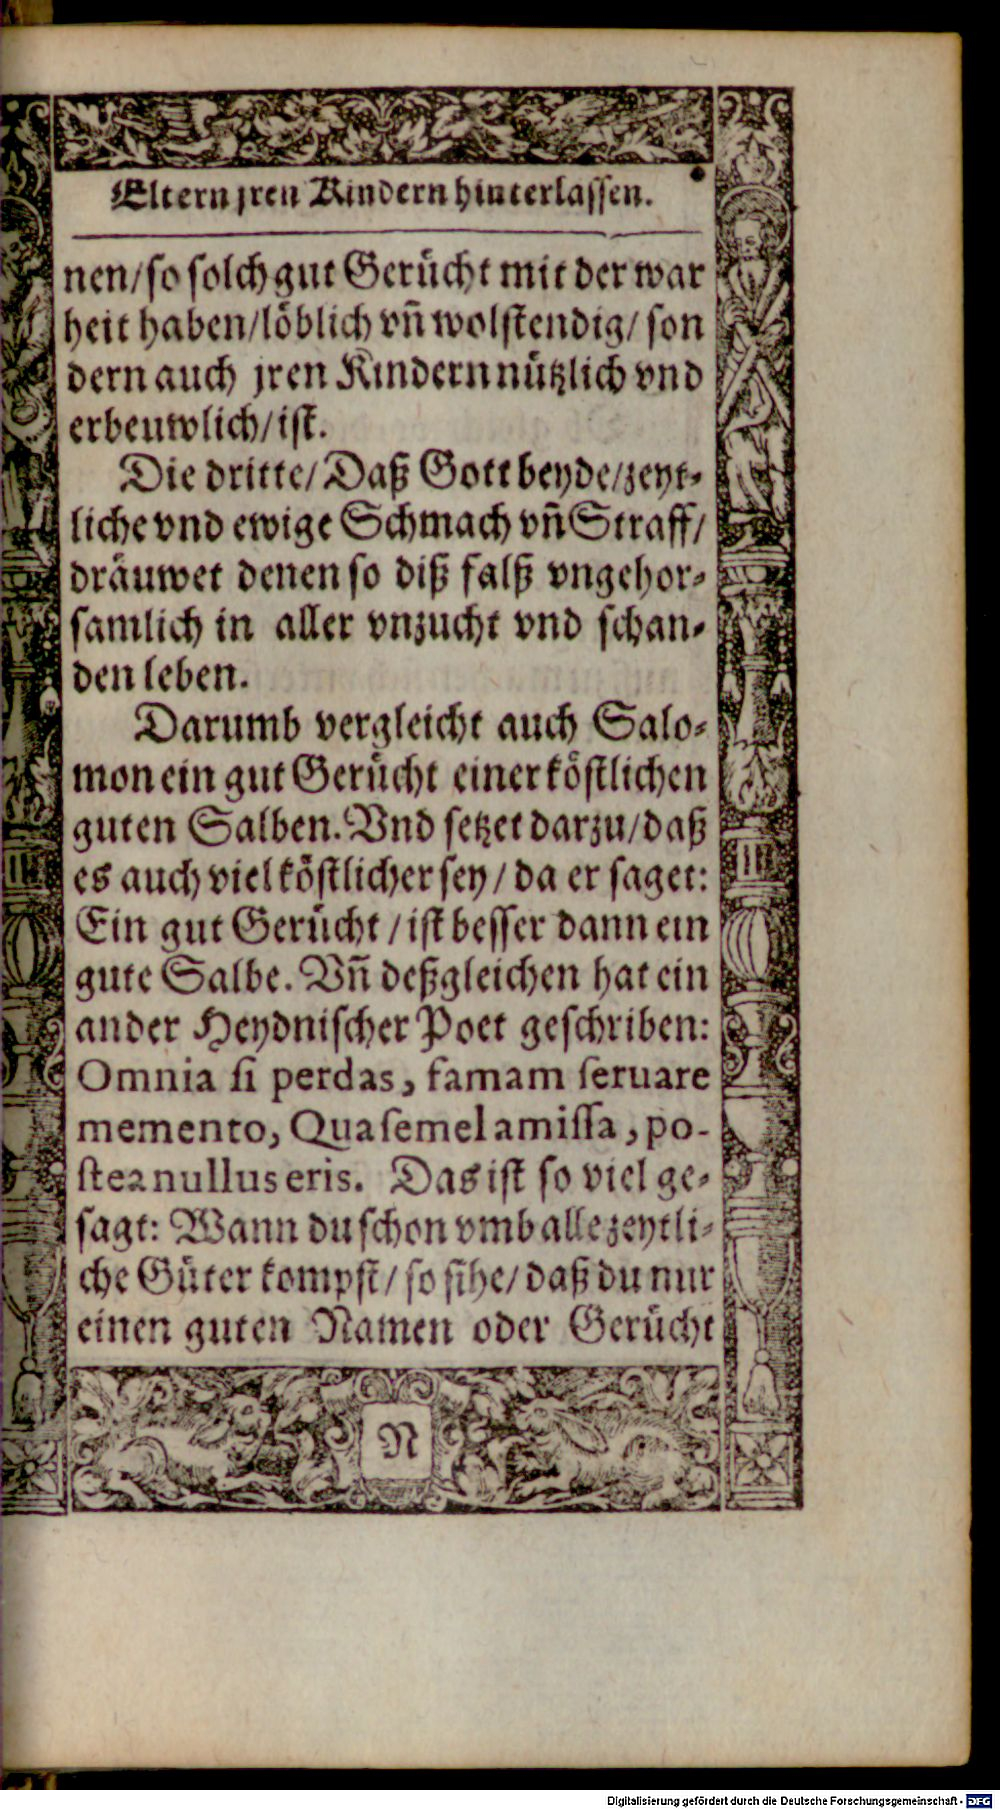 Eltern jren Kindern hinterlassen.
nen/ so solch gut Gerücht mit der war
heit haben/ löblich vñ wolstendig/ son
dern auch jren Kindern nützlich vnd
erbeuwlich/ ist.
Die dritte/ Daß Gott beyde/ zeyt-
liche vnd ewige Schmach vñ Straff/
dräuwet denen so diß falß vngehor-
samlich in aller vnzucht vnd schan-
den leben.
Darumb vergleicht auch Salo-
mon ein gut Gerücht einer köstlichen
guten Salben. Vnd setzet darzu/ daß
es auch viel köstlicher sey/ da er saget:
Ein gut Gerücht/ ist besser dann ein
gute Salbe. Vñ deßgleichen hat ein
ander Heydnischer Poet geschriben:
Omnia si perdas, famam seruare
memento, Qua semel amissa, po-
stea nullus eris. Das ist so viel ge-
sagt: Wann du schon vmb alle zeytli-
che Güter kompst/ so sihe/ daß du nur
einen guten Namen oder Gerücht
N
Digitalisierung gefördert durch die Deutsche Forschungsgemeinschaft - DFG